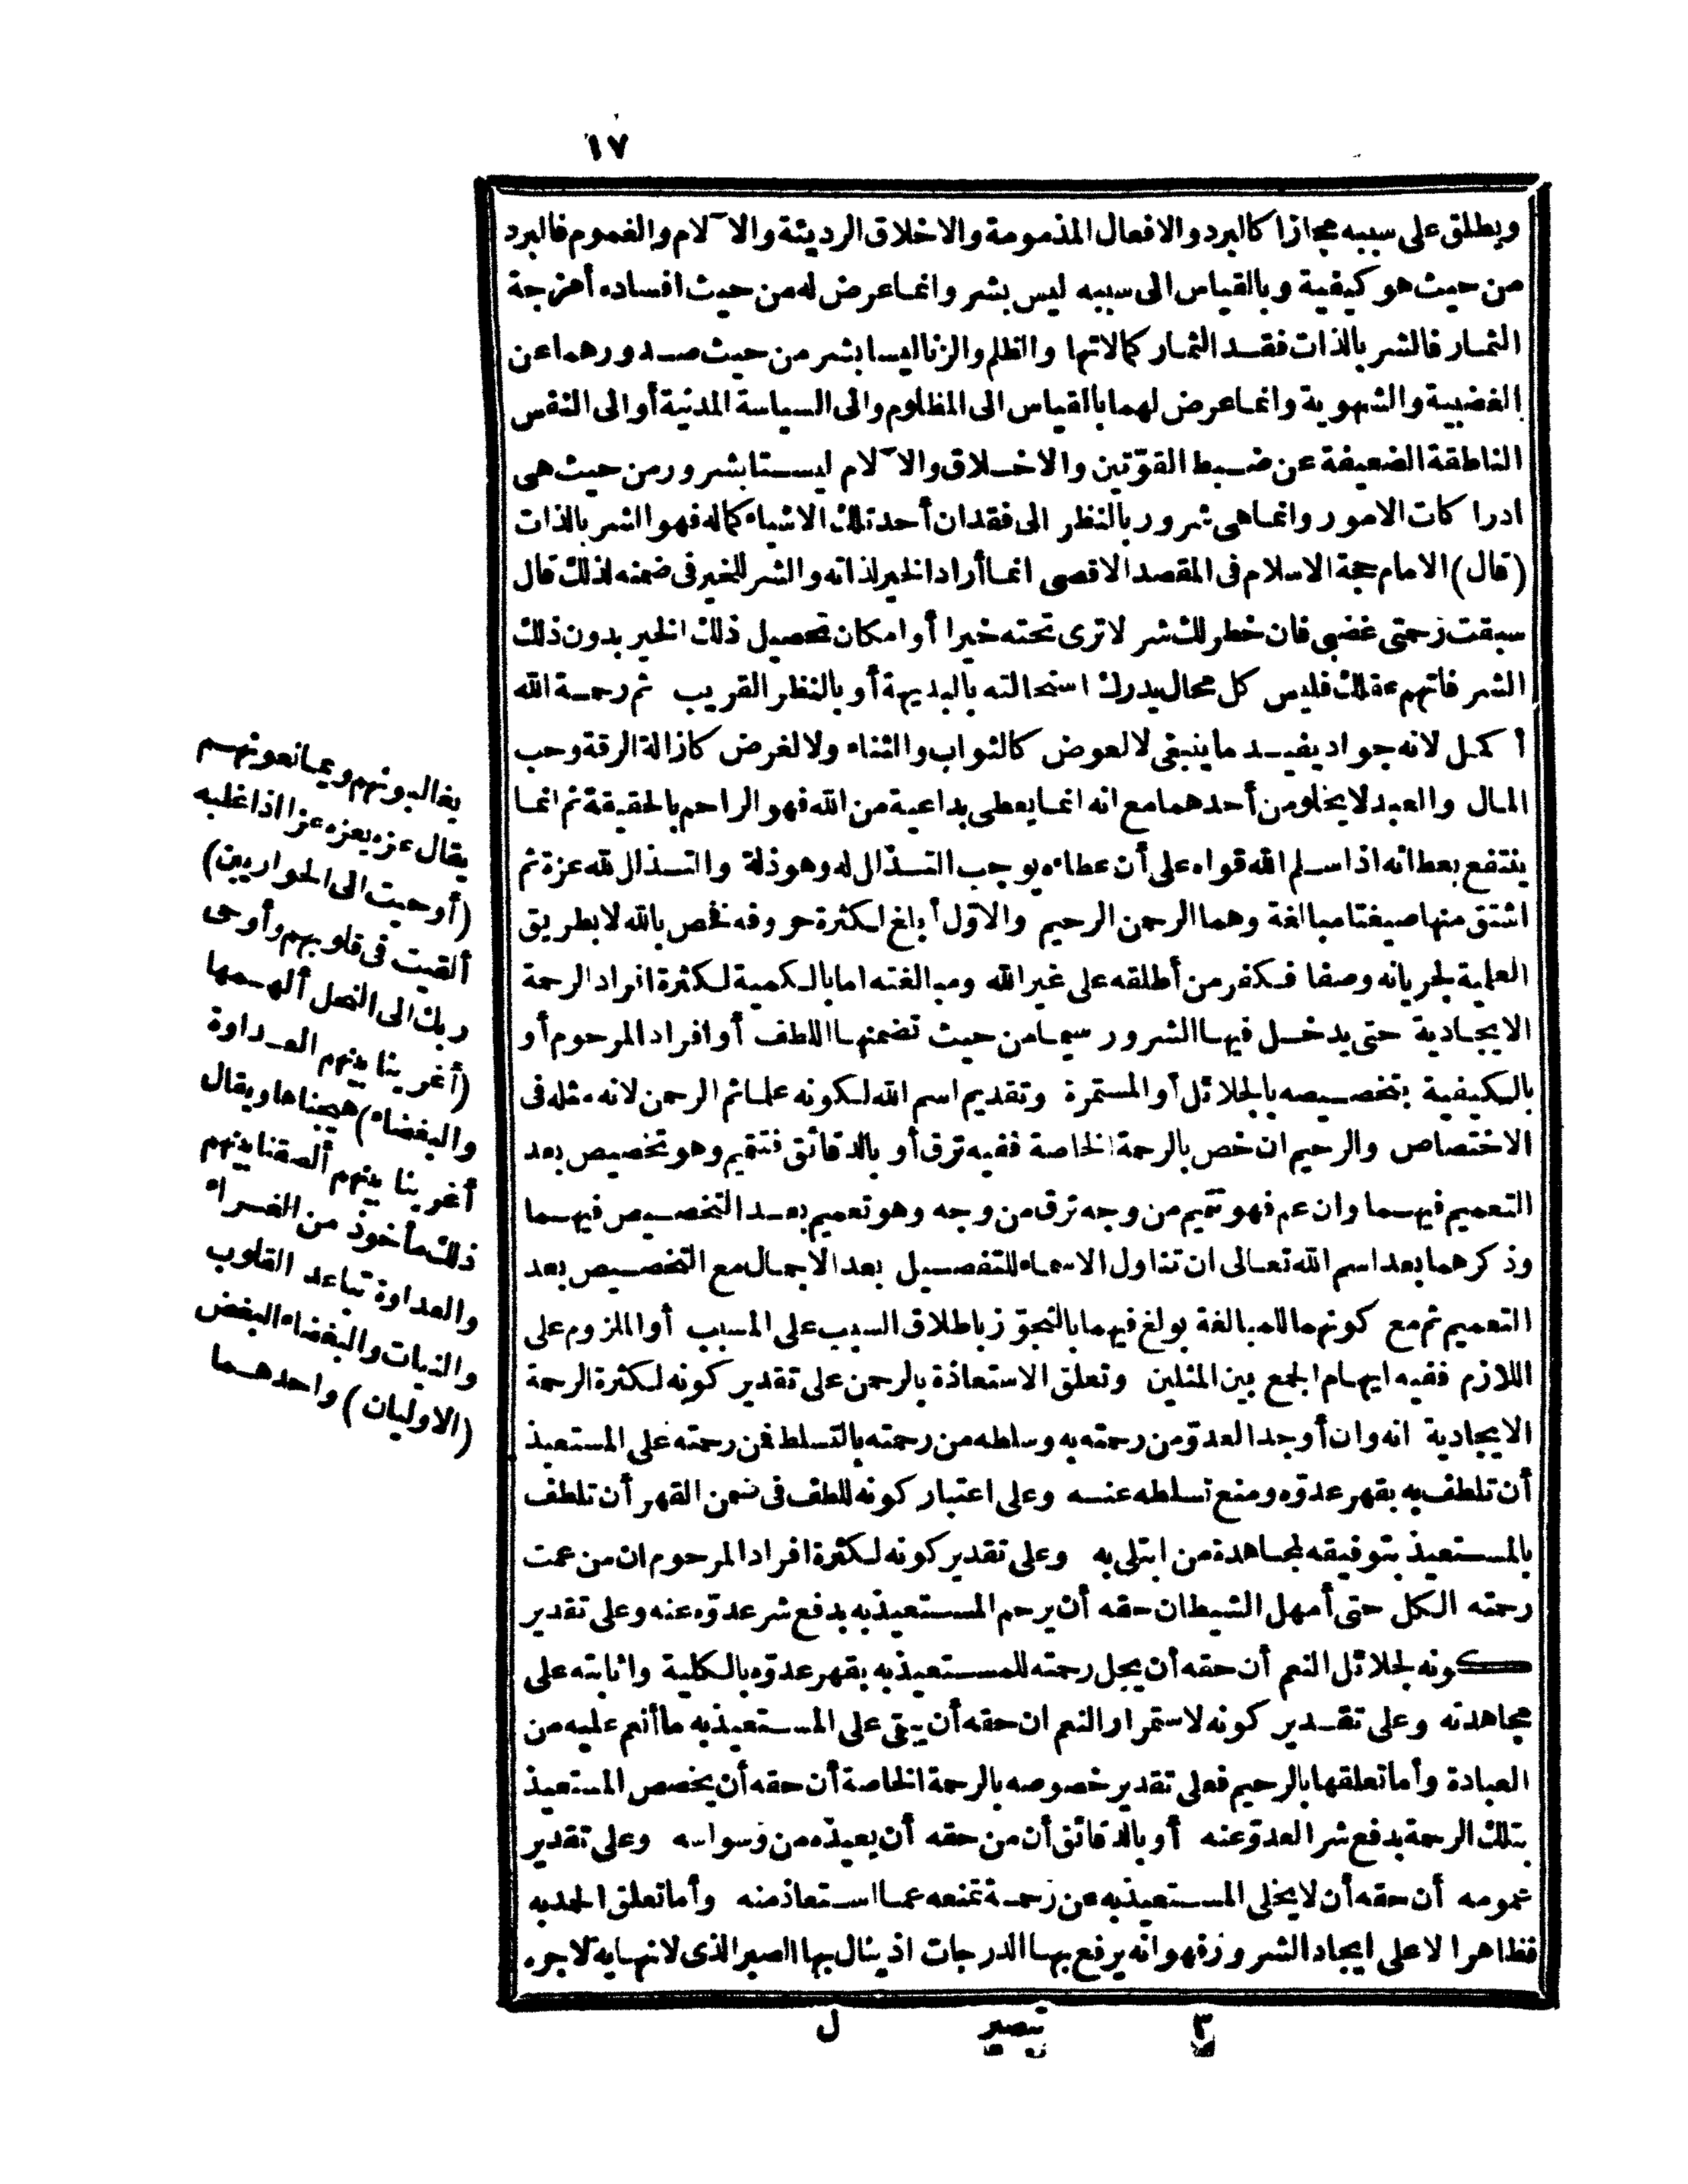 ١٧
ويطلق على سببه مجازا كالبرد والافعال المذمومة والاخلاق الرديئة والآلام والغموم فالبرد
من حيث هو كيفية وبالقياس الى سببه ليس بشر وانما عرض له من حيث افساده أمزجة
الثمار فالشر بالذات فقد الثمار كمالاتها والظلم والزنا ليسا بشر من حيث صدورهما عن
الغضبية والشهوية وانما عرض لهما بالقياس الى المظلوم والى السياسة المدنية أو الى النفس
الناطقة الضعيفة عن ضبط القوّتين والاخلاق والآلام ليستا بشرور من حيث هى
ادراكات الامور وانما هى شرور بالنظر الى فقدان أحد تلك الاشياء كماله فهو الشر بالذات
(قال) الامام حجة الاسلام فى المقصد الاقصى انما أراد الخير لذاته والشر للخير فى ضمنه لذلك قال
سبقت رحمتى غضبى فان خطر لك شر لا ترى تحته خيرا أو امكان تحصيل ذلك الخير بدون ذلك
الشر فاتهم عقلك فليس كل محال يدرك استحالته بالبديهة أو بالنظر القريب ثم رحمة الله
أكمل لانه جواد يفيد ما ينبغى لا لعوض كالثواب والثناء ولا لغرض كازالة الرقة وحب
المال والعبد لا يخلو من أحدهما مع انه انما يعطى بداعية من الله فهو الراحم بالحقيقة ثم انما
ينتفع بعطائه اذا سلم الله قواه على أن عطاءه يوجب التذلل له وهو ذلة والتذلل لله عزة ثم
اشتق منها صيغتا مبالغة وهما الرحمن الرحيم والاوّل أبلغ لكثرة حروفه فخص بالله لا بطريق
العلمية لجريانه وصفا فكفر من أطلقه على غير الله ومبالغته اما بالكمية لكثرة افراد الرحمة
الايجادية حتى يدخل فيها الشرور سيما من حيث تضمنها اللطف أو افراد المرحوم أو
بالكيفية بتخصيصه بالجلائل أو المستمرة وتقديم اسم الله لكونه علما ثم الرحمن لانه مثله فى
الاختصاص والرحيم ان خص بالرحمة الخاصة ففيه ترق أو بالدقائق فتتميم وهو تخصيص بعد
التعميم فيهما وان عم فهو تتميم من وجه ترق من وجه وهو تعميم بعد التخصيص فيهما
وذكرهما بعد اسم الله تعالى ان تناول الاسماء للتفصيل بعد الاجمال مع التخصيص بعد
التعميم ثم مع كونهما للمبالغة بولغ فيهما بالتجوّز باطلاق السبب على المسبب أو الملزوم على
اللازم ففيه ايهام الجمع بين المثلين وتعلق الاستعاذة بالرحمن على تقدير كونه لكثرة الرحمة
الايجادية انه وان أوجد العدوّ من رحمته به وسلطه من رحمته بالتسلط فمن رحمته على المستعيذ
أن تلطف به بقهر عدوّه ومنع تسلطه عنه وعلى اعتبار كونه للطف فى ضمن القهر أن تلطف
بالمستعيذ بتوفيقه لمجاهدة من ابتلى به وعلى تقدير كونه لكثرة افراد المرحوم ان من عمت
رحمته الكل حتى أمهل الشيطان حقه أن يرحم المستعيذ به بدفع شر عدوّه عنه وعلى تقدير
كونه لجلائل النعم أن حقه أن يجل رحمته للمستعيذ به بقهر عدوّه بالكلية واثابته على
مجاهدته وعلى تقدير كونه لاستمرار النعم ان حقه أن يبقى على المستعيذ به ما أنعم عليه من
العبادة وأما تعلقها بالرحيم فعلى تقدير خصوصه بالرحمة الخاصة أن حقه أن يخصص المستعيذ
بتلك الرحمة بدفع شر العدوّ عنه أو بالدقائق أن من حقه أن يعيذه من وسواسه وعلى تقدير
عمومه أن حقه أن لا يخلى المستعيذ به عن رحمة تمنعه عما استعاذ منه وأما تعلق الحمد به
فظاهر الا على ايجاد الشرور فهو انه يرفع بها الدرجات اذ ينال بها الصبر الذى لا نهاية لاجره
يغالبونهم ويمانعونهم
يقال عزه يعزه عزا اذا غلبه
(أوحيت الى الحواريين)
ألقيت فى قلوبهم وأوحى
ربك الى النحل ألهمها
(أغرينا بينهم العداوة
والبغضاء) هيجناها ويقال
أغرينا بينهم ألصقنا بينهم
ذلك مأخوذ من الغراء
والعداوة تباعد القلوب
والنيات والبغضاء البغض
(الاوليان) واحدهما
٣ تبصير ل